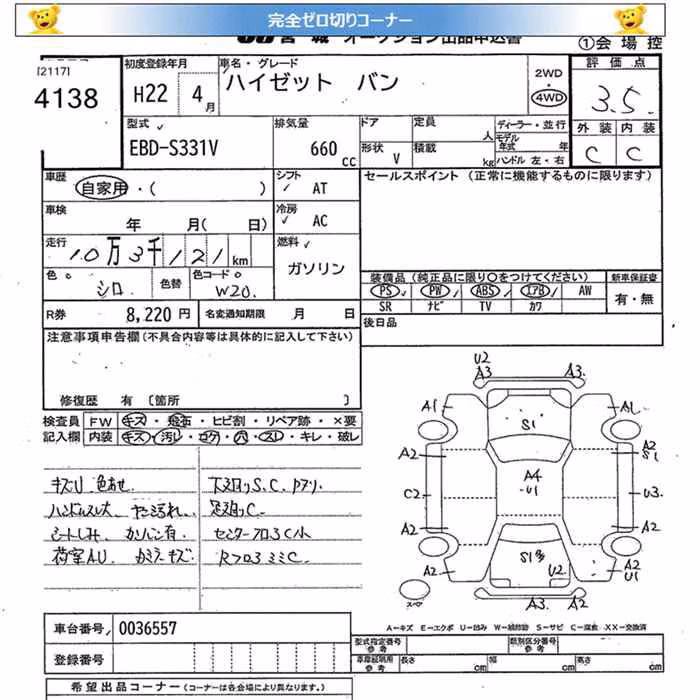 完全ゼロ切りコーナー
宮城 オークション出品申込書
①会場控
[2117]
4138
初度登録年月
H22 4月
車名・グレード
ハイゼット バン
2WD
・
4WD
評価点
3.5
型式
EBD-S331V
排気量
660 cc
ドア
形状 V
定員 人
積載 kg
ディーラー・並行
モデル年式 年
ハンドル 左・右
外装 内装
C C
車歴
自家用・( )
シフト
AT
セールスポイント (正常に機能するものに限ります)
車検
年 月( 日)
冷房
AC
走行
10万3千121km
燃料
ガソリン
色
シロ
色替
色コード
W20.
装備品 (純正品に限り○をつけてください)
新車保証書
PS PW ABS エアB AW
SR ナビ TV カワ
有・無
R券 8,220円
名変通知期限 月 日
後日品
注意事項申告欄 (不具合内容等は具体的に記入して下さい)
修復歴 有 [箇所 ]
検査員 FW キズ・飛石・ヒビ割・リペア跡・×要
記入欄 内装 キズ・汚レ・コゲ・穴・スレ・キレ・破レ
キズU 色あせ
ハンドルスレ大
シートしみ
荷室AU
下廻りS.C
足廻りC
U2
A3 A3.
A1 A1
S1
A2 A2
S1
A4
U1
C2 U3
A2 A2
S1
U2
A2 A2
U1
スペア
A3 A2
A-キズ E-エクボ U-凹み W-補修跡 S-サビ C-腐食 XX-交換済
車台番号 0036557
登録番号
型式指定番号
参考
類別区分番号
参考
車庫証明用
参考
長さ cm
幅 cm
高さ cm
希望出品コーナー (コーナーは各会場により異なります。)